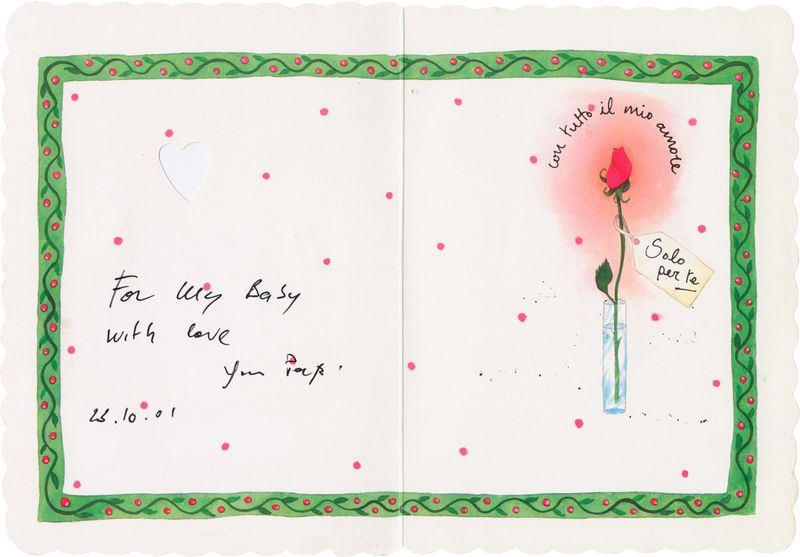 For My Baby
with love
Your Papi
23.10.01
con tutto il mio amore
Solo
per te